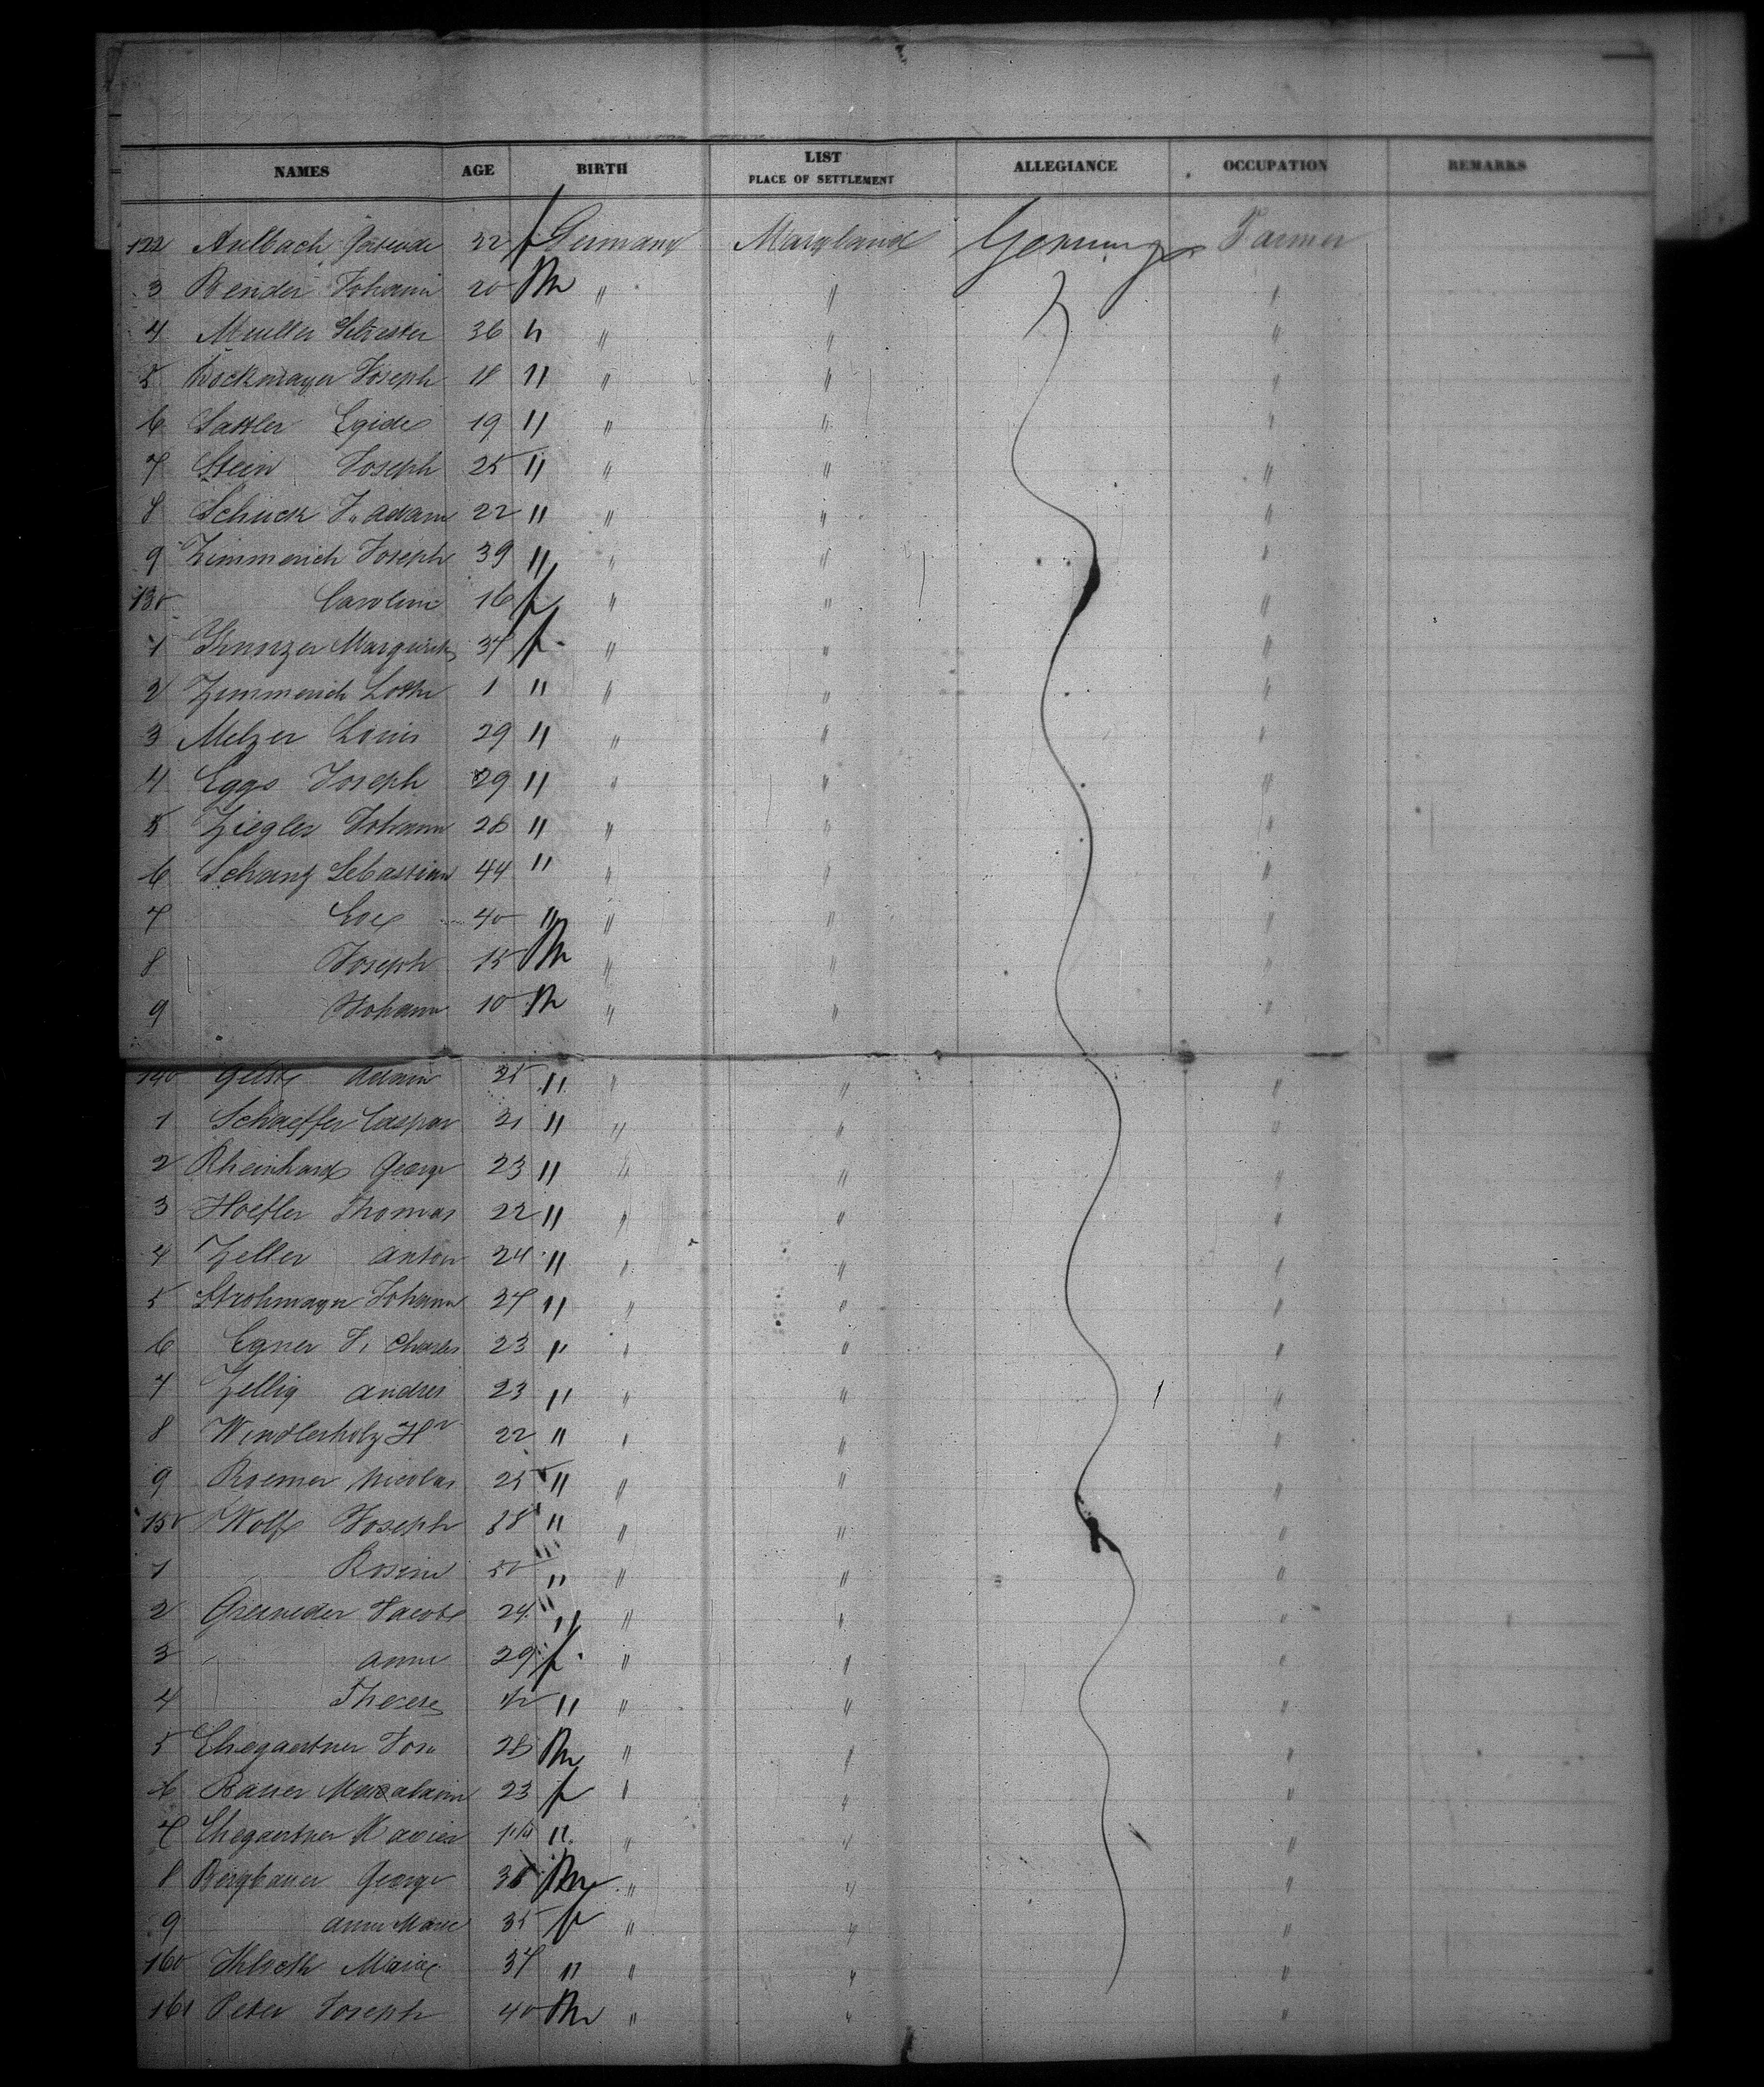 NAMES AGE BIRTH LIST PLACE OF SETTLEMENT ALLEGIANCE OCCUPATION REMARKS
122 Aulbach 22 f Germany Maryland Germany Farmer
3 Bender Johann 20 m " " "
4 Mueller Silvester 36 " " " "
5 Bockmayer Joseph 18 " " " "
6 Sattler Egide 19 " " " "
7 Stein Joseph 25 " " " "
8 Schuck J. Adam 22 " " " "
9 Zimmerich Joseph 39 " " " "
130 Caroline 16 f " " "
1 34 f " " "
2 Zimmerich 1 " " " "
3 Melzer Louis 29 " " " "
4 Eggs Joseph 29 " " " "
5 Ziegler Johann 28 " " " "
6 Schanz Sebastian 44 " " " "
7 Eve 40 " " " "
8 Joseph 15 m " " "
9 Johann 10 m " " "
140 Adam 25 " " " "
1 Schaeffer Caspar 21 " " " "
2 Rheinhard George 23 " " " "
3 Hoefler Thomas 22 " " " "
4 Zeller Anton 24 " " " "
5 Strohmayer Johann 27 " " " "
6 Egner J. Charles 23 " " " "
7 Zellig Andres 23 " " " "
8 22 " " " "
9 Roemer Nicolas 25 " " " "
150 Wolf Joseph " " " "
1 Rosine 50 " " " "
2 Jacob 24 " " " "
3 " Anna 29 f " " "
4 Therese " " " "
5 Ehegaertner Jos. 28 m " " "
6 Bauer 23 f " " "
7 Ehegaertner Xavier " " " "
8 Bergbauer George m " " "
9 Anna Marie 35 f " " "
160 Maria 37 " " " "
161 Peter Joseph 40 m " " "